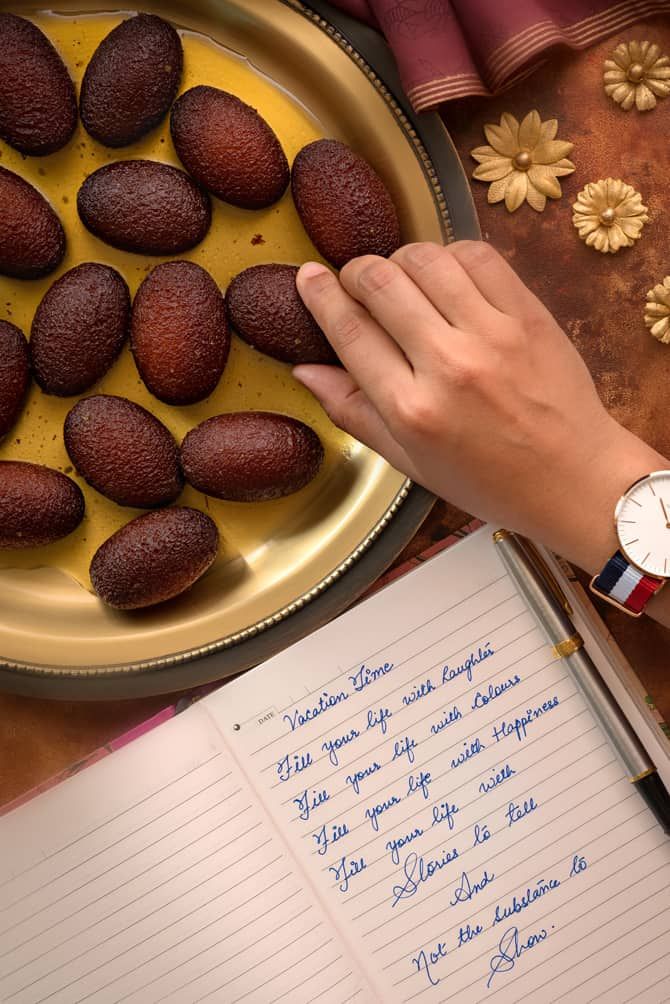 DATE
Vacation Time
Fill your life with Laughter
Fill your life with Colours
Fill your life with Happiness
Fill your life with
Stories to tell
And
Not the substance to
Show.